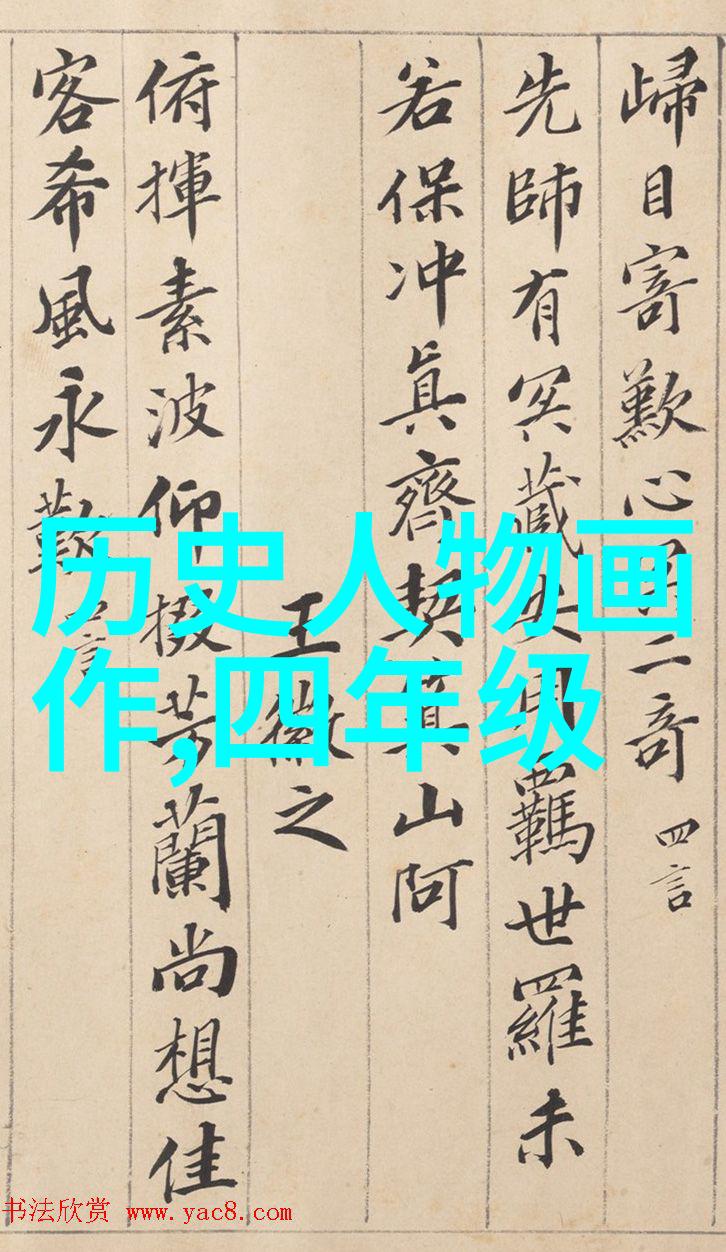 歸目寄歎心二奇 四言
先師有冥藏安用羈世羅未
若保冲真齊契箕山阿
王徽之
俯揮素波仰掇芳蘭尚想佳
客希風永歎 四言
历史人物画
作,四年级
书法欣赏 www.yac8.com